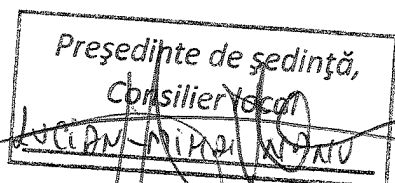 Preşedinte de şedinţă,
Consilier local
LUCIAN-MIHAI NANU